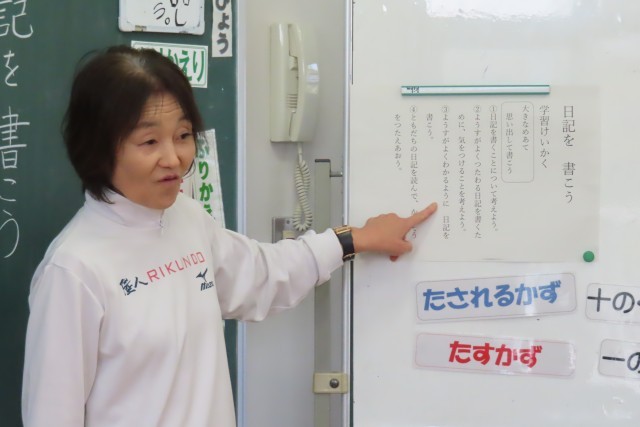 日記を 書こう
学習けいかく
大きなめあて
思い出して書こう
①日記を書くことについて考えよう。
②ようすがよくつたわる日記を書くた
めに、気をつけることを考えよう。
③ようすがよくわかるように 日記を
書こう。
④ともだちの日記を読んで、
をつたえあおう。
たされるかず
たすかず
十の
一の
記を書こう
ひょう
かえり
ふりかえ
RIKUNDO